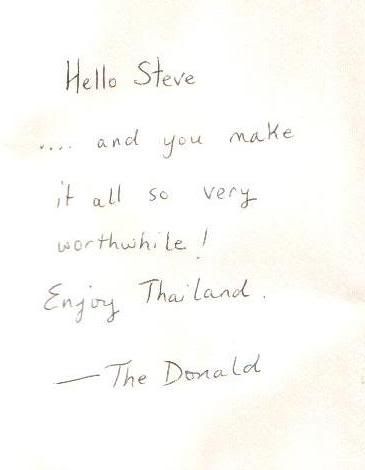 Hello Steve
.... and you make
it all so very
worthwhile!
Enjoy Thailand.
— The Donald